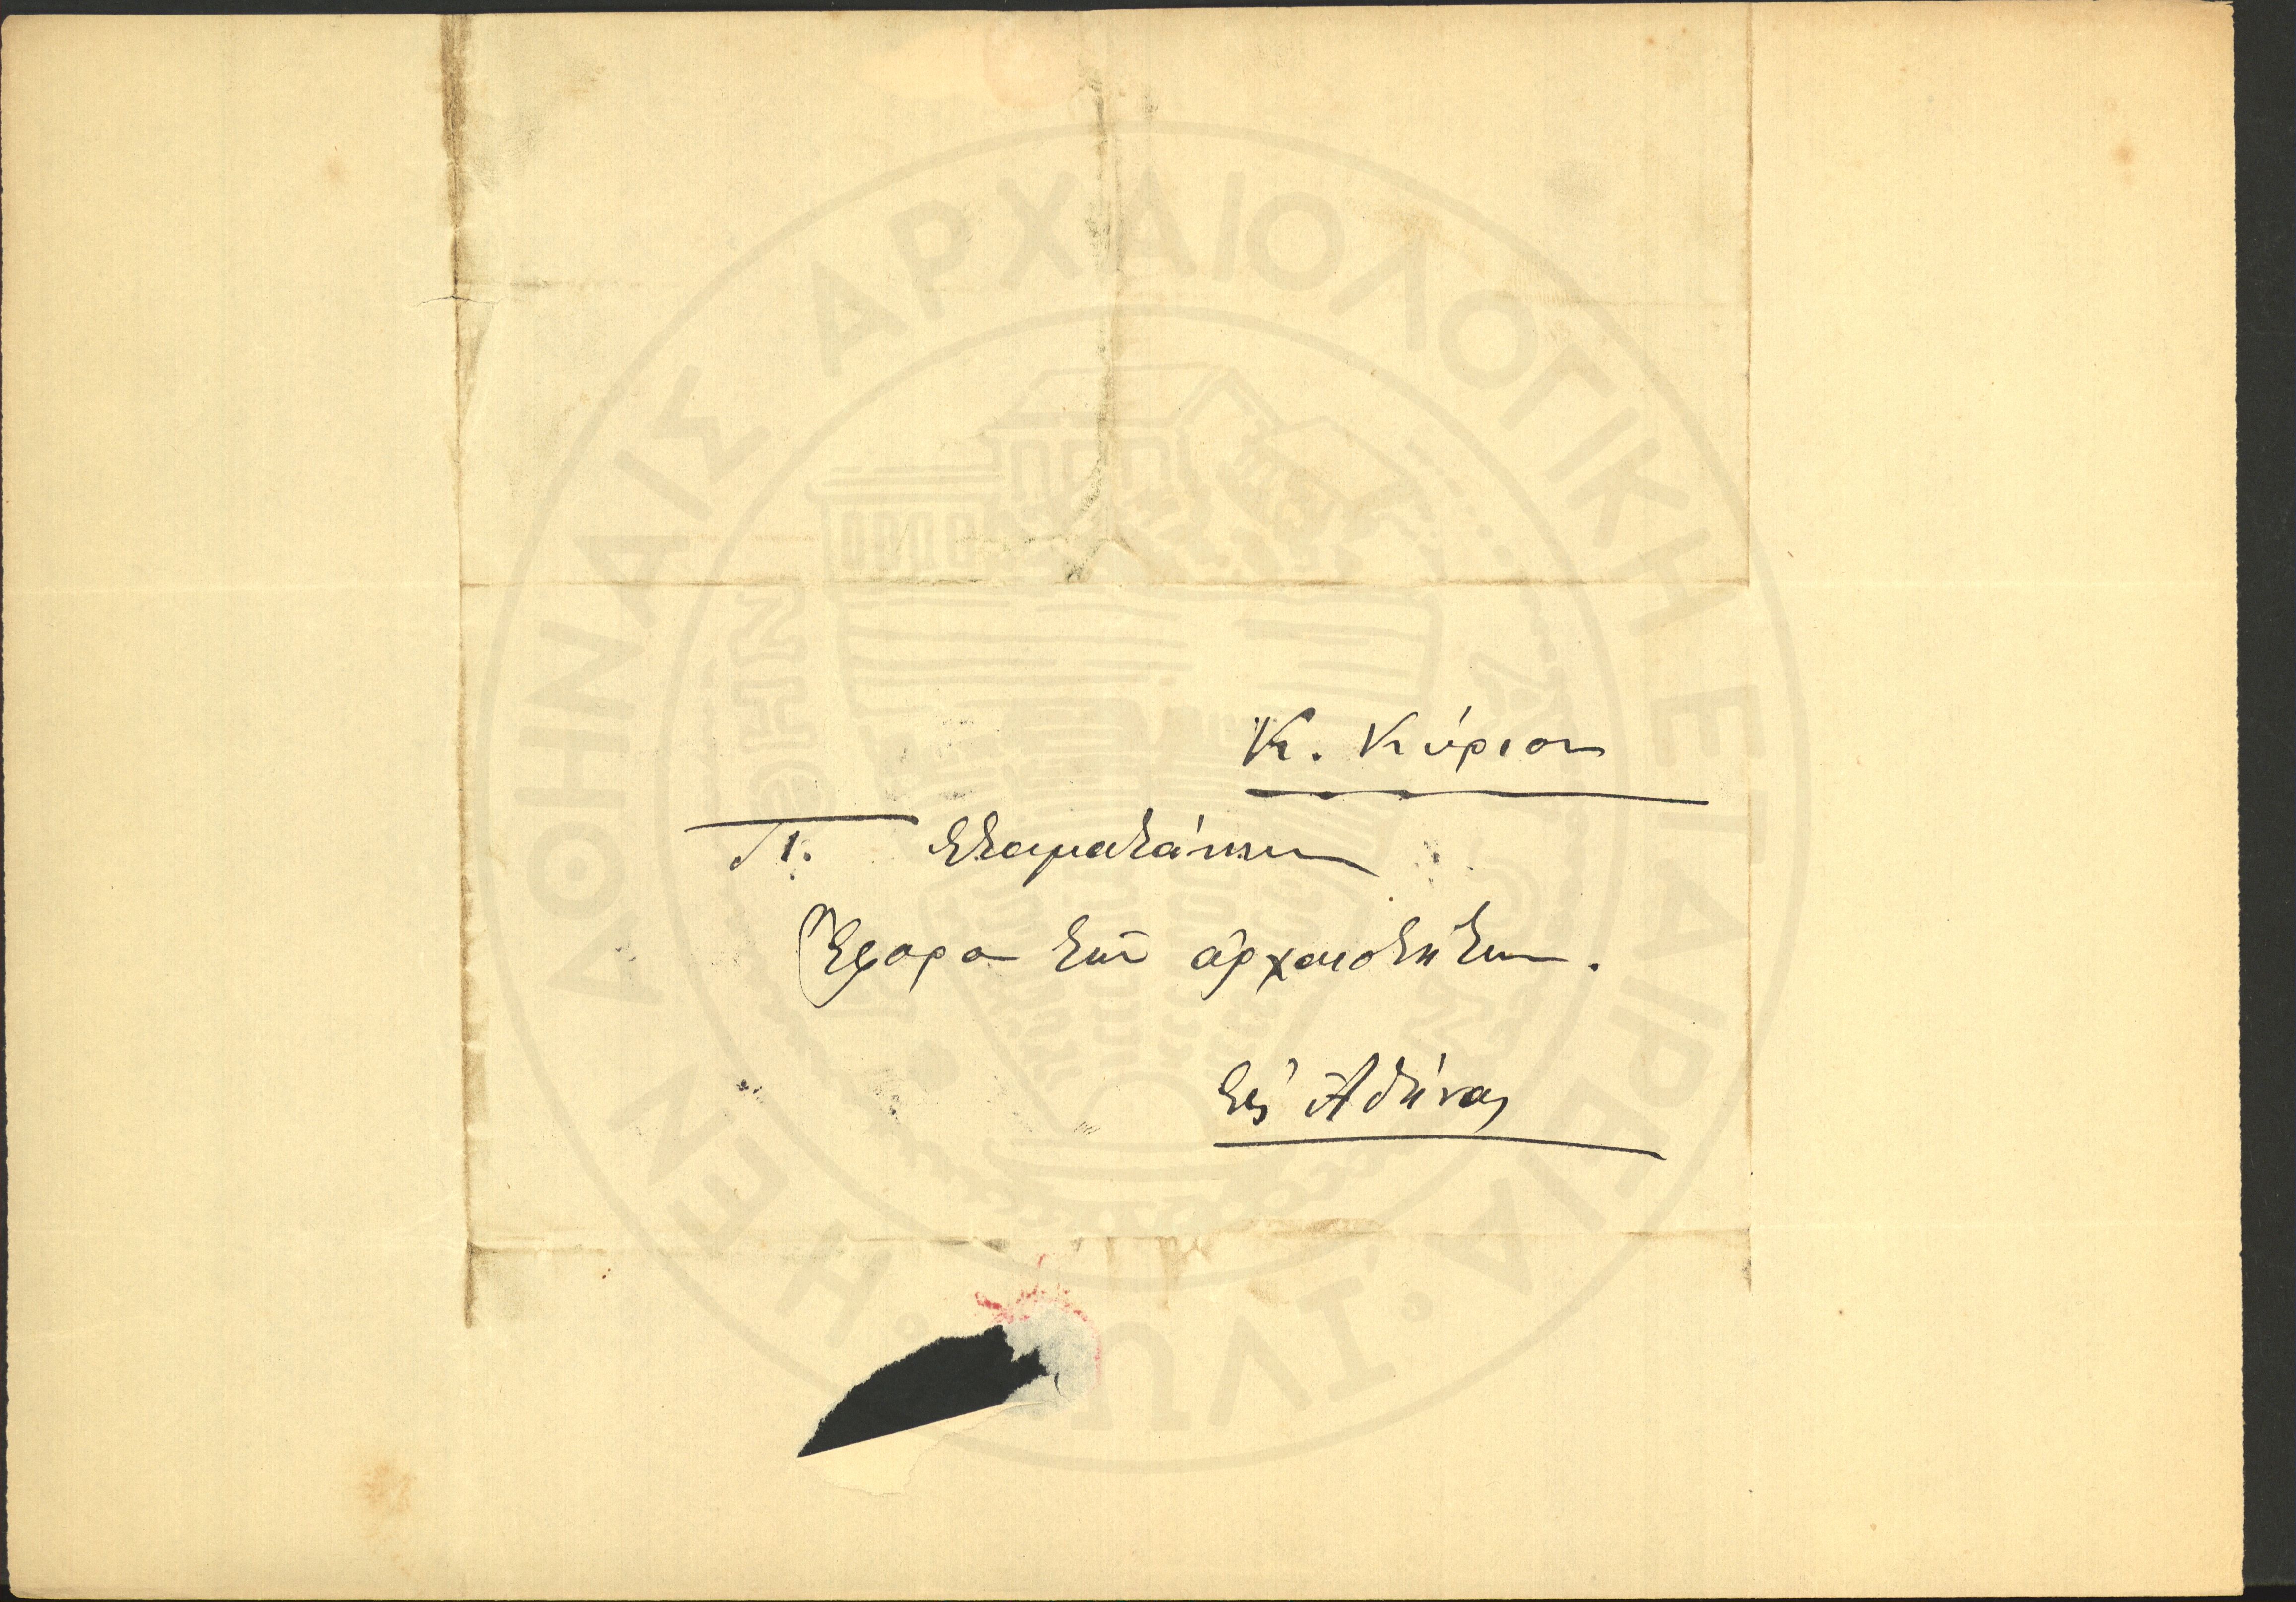 Κ. Κύριον
Π. Σταματάκην
Ἔφορον τῶν ἀρχαιοτήτων.
Εἰς Ἀθήνας
Η ΕΝ ΑΘΗΝΑΙΣ ΑΡΧΑΙΟΛΟΓΙΚΗ ΕΤΑΙΡΕΙΑ